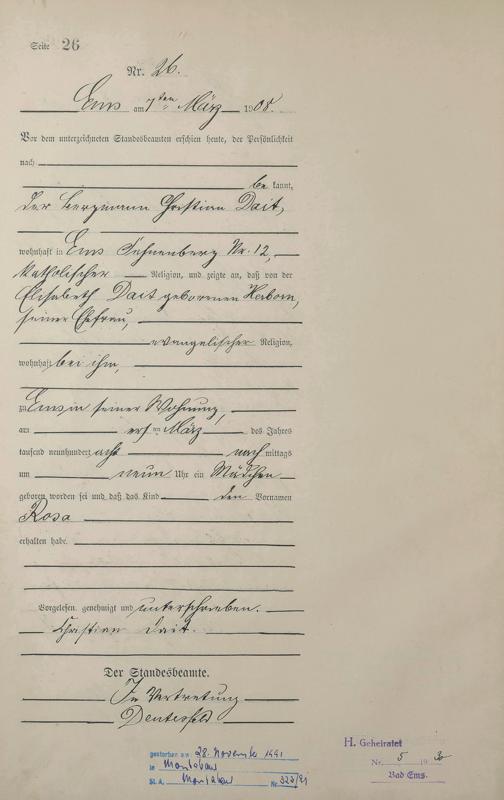 Seite 26
Nr. 26.
Ems am 7ten März 1908.
Vor dem unterzeichneten Standesbeamten erschien heute, der Persönlichkeit
nach
be kannt,
der Bergmann Christian Dait,
wohnhaft in Ems Nr. 12,
katholischer Religion, und zeigte an, daß von der
Elisabeth Dait geborenen Herborn,
seiner Ehefrau,
evangelischer Religion,
wohnhaft bei ihm,
zu Ems in seiner Wohnung,
am ersten März des Jahres
tausend neunhundert acht nach mittags
um neun Uhr ein Mädchen
geboren worden sei und daß das Kind den Vornamen
Rosa
erhalten habe.
Vorgelesen, genehmigt und unterschrieben.
Christian Dait.
Der Standesbeamte.
In Vertretung
gestorben am 28. November 1991
in Montabaur
St. A. Montabaur Nr. 323/91
H. Geheiratet
Nr. 5 1930
Bad Ems.